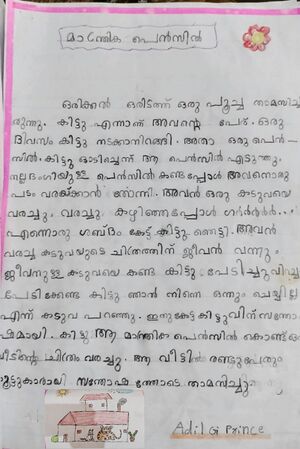 മാന്ത്രിക പെൻസിൽ
ഒരിക്കൽ ഒരിടത്ത് ഒരു പൂച്ച താമസിച്ചി
രുന്നു. കിട്ടു എന്നാണ് അവന്റെ പേര്. ഒരു
ദിവസം കിട്ടു നടക്കാനിറങ്ങി. അതാ ഒരു പെൻ-
സിൽ. കിട്ടു ഓടിച്ചെന്ന് ആ പെൻസിൽ എടുത്തു.
നല്ല ഭംഗിയുള്ള പെൻസിൽ കണ്ടപ്പോൾ അവനൊരു
പടം വരയ്ക്കാൻ തോന്നി. അവൻ ഒരു കടുവയെ
വരച്ചു. വരച്ചു കഴിഞ്ഞപ്പോൾ ഗർർർർർ...
എന്നൊരു ശബ്ദം കേട്ട് കിട്ടു ഞെട്ടി. അവൻ
വരച്ച കടുവയുടെ ചിത്രത്തിന് ജീവൻ വന്നു.
ജീവനുള്ള കടുവയെ കണ്ട കിട്ടു പേടിച്ചു വിറച്ചു
പേടിക്കേണ്ട കിട്ടു ഞാൻ നിന്നെ ഒന്നും ചെയ്യില്ല
എന്ന് കടുവ പറഞ്ഞു. ഇതുകേട്ട് കിട്ടുവിന് സന്തോ
ഷമായി. കിട്ടു ആ മാന്ത്രിക പെൻസിൽ കൊണ്ട് ഒരു
വീടിന്റെ ചിത്രം വരച്ചു. ആ വീട്ടിൽ രണ്ടുപേരും
കൂട്ടുകാരായി സന്തോഷത്തോടെ താമസിച്ചു
Adil Gi Prince